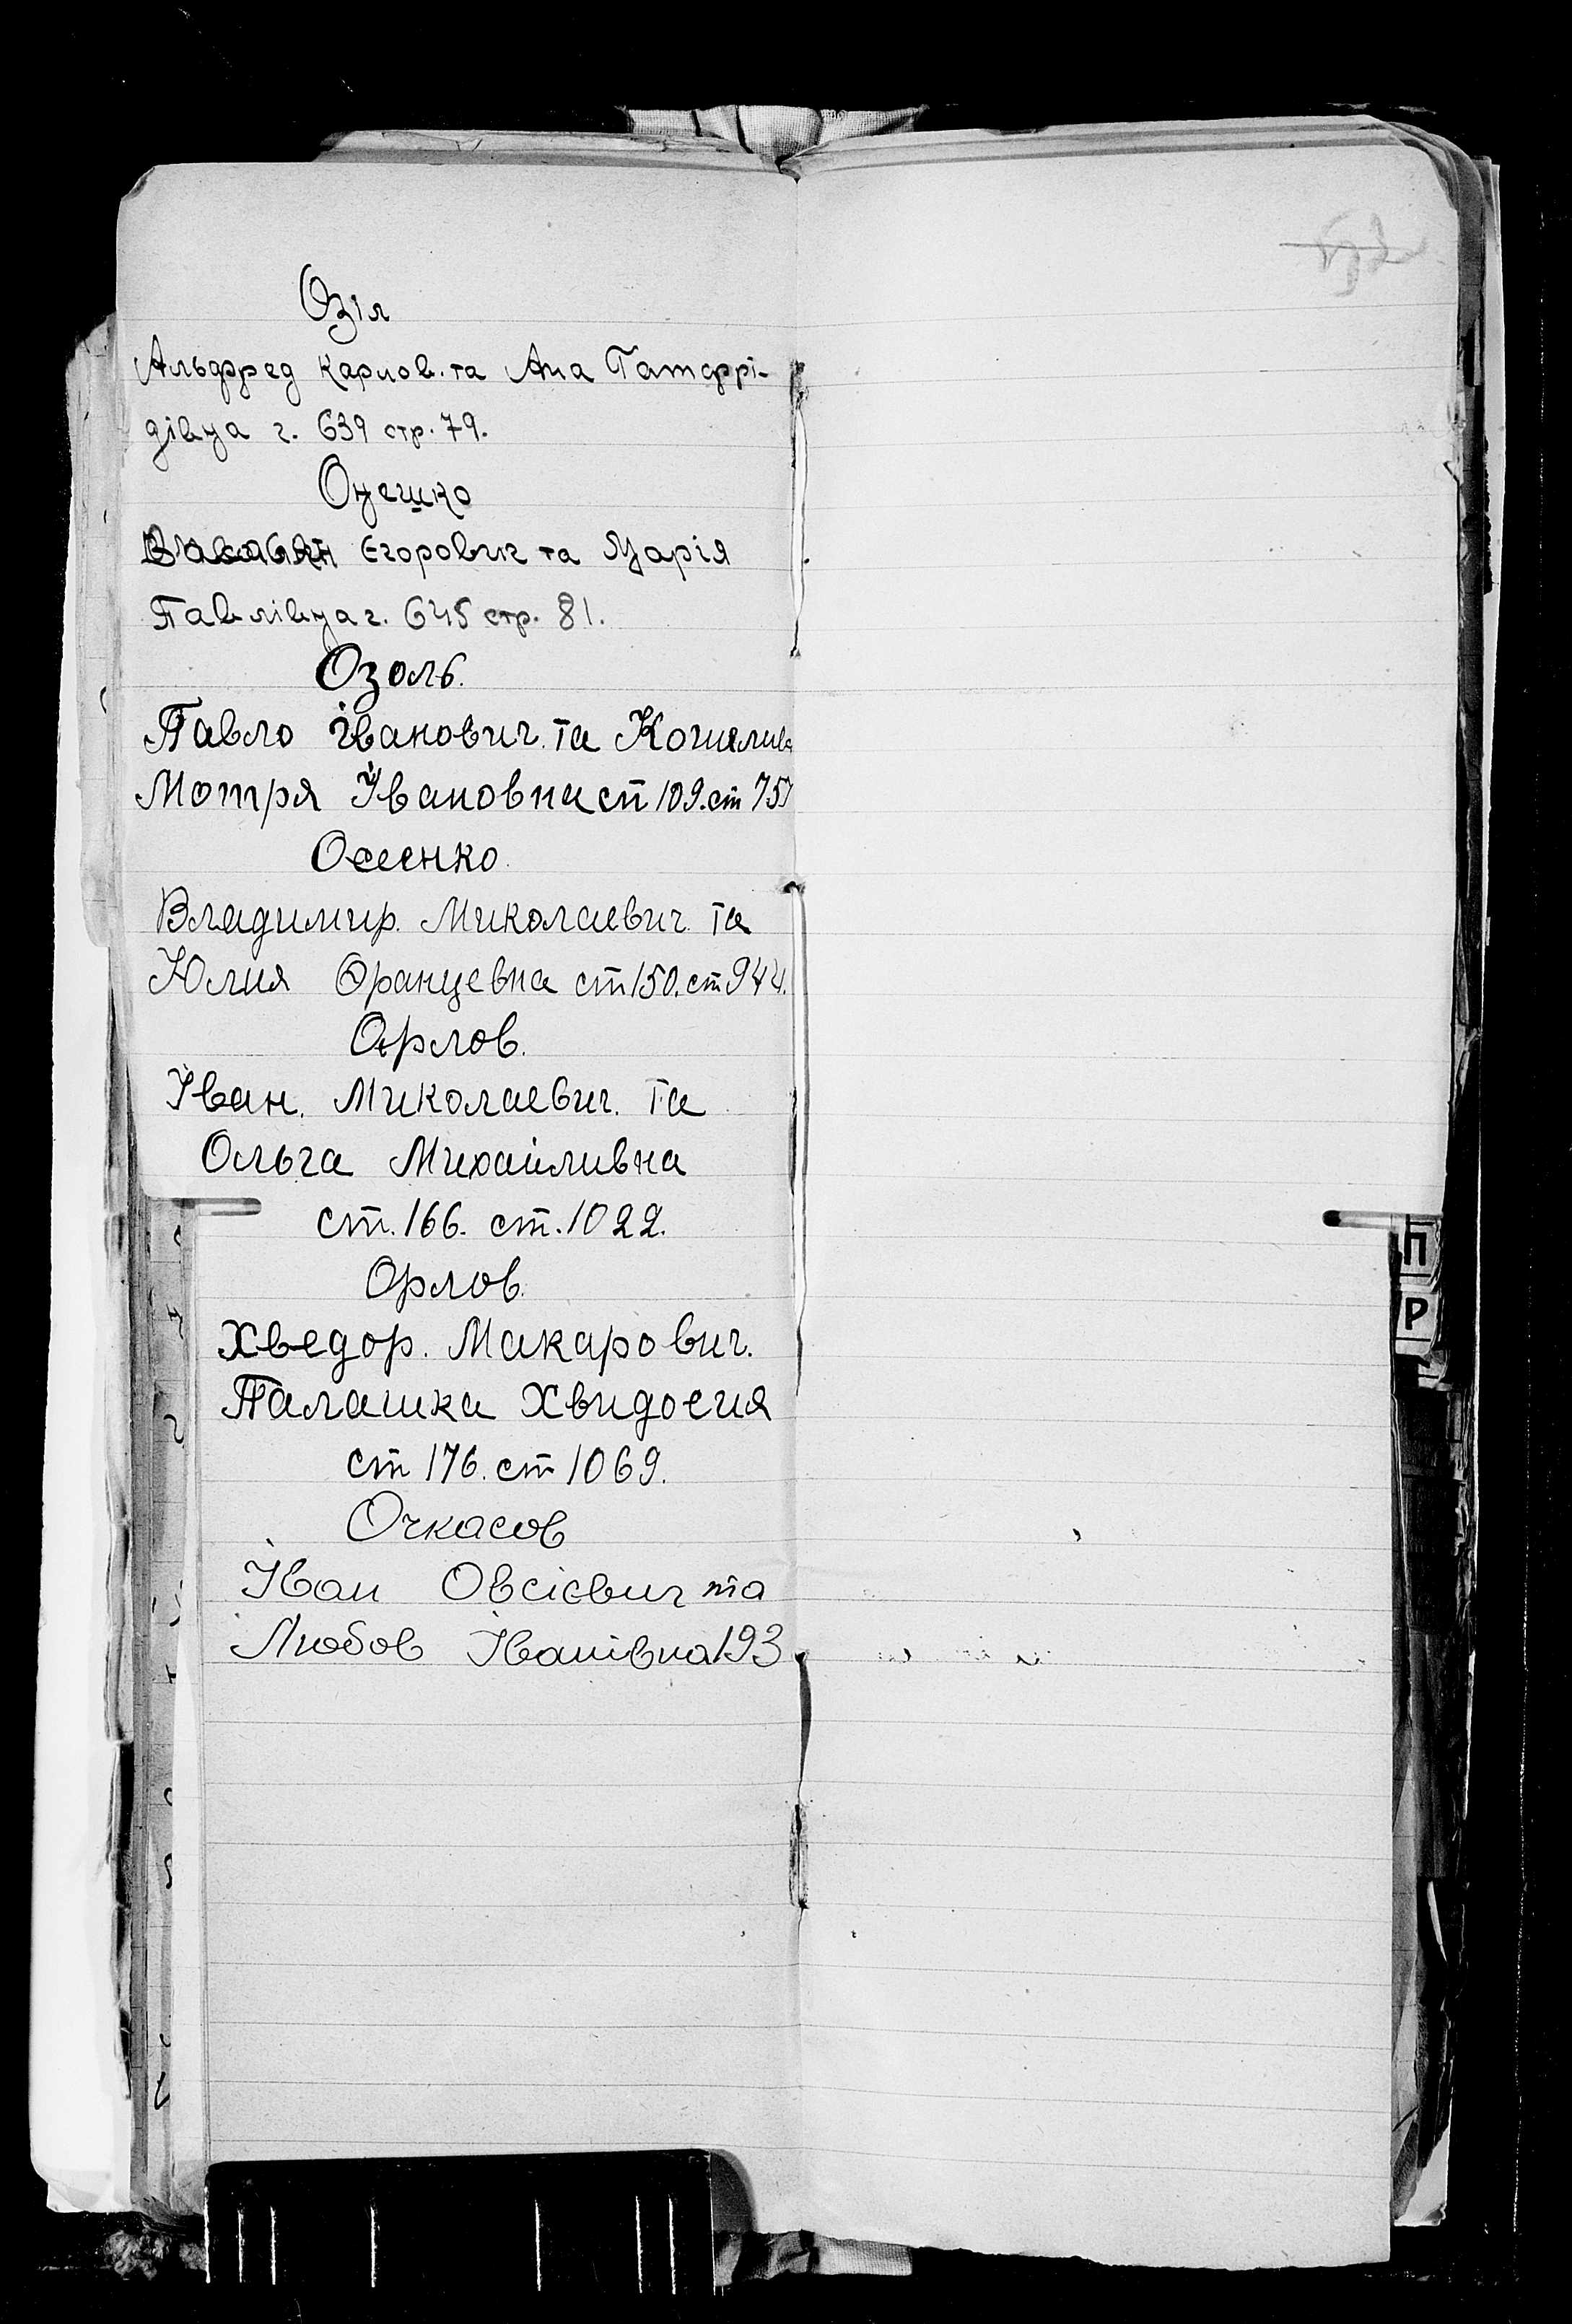 Озіл
Альфред Карлов. та Ана Готфрі-
дівна г. 639 стр. 79.
Онешко
Єгорович та Марія
Павлівна г. 645 стр. 81.
Озоль.
Павло Іванович. та
Мотря Івановна ст 109. ст 757
Осеенко.
Владимир. Миколаевич. та
Юлия Францевна ст 150. ст 944.
Орлов.
Іван. Миколаевич. та
Ольга Михайливна
ст. 166. ст. 1022.
Орлов.
Хведор. Макарович.
Палашка Хвидосия
ст 176. ст 1069.
Очкасов
Іван Овсієвич та
Любов Іванівна 193
П
Р